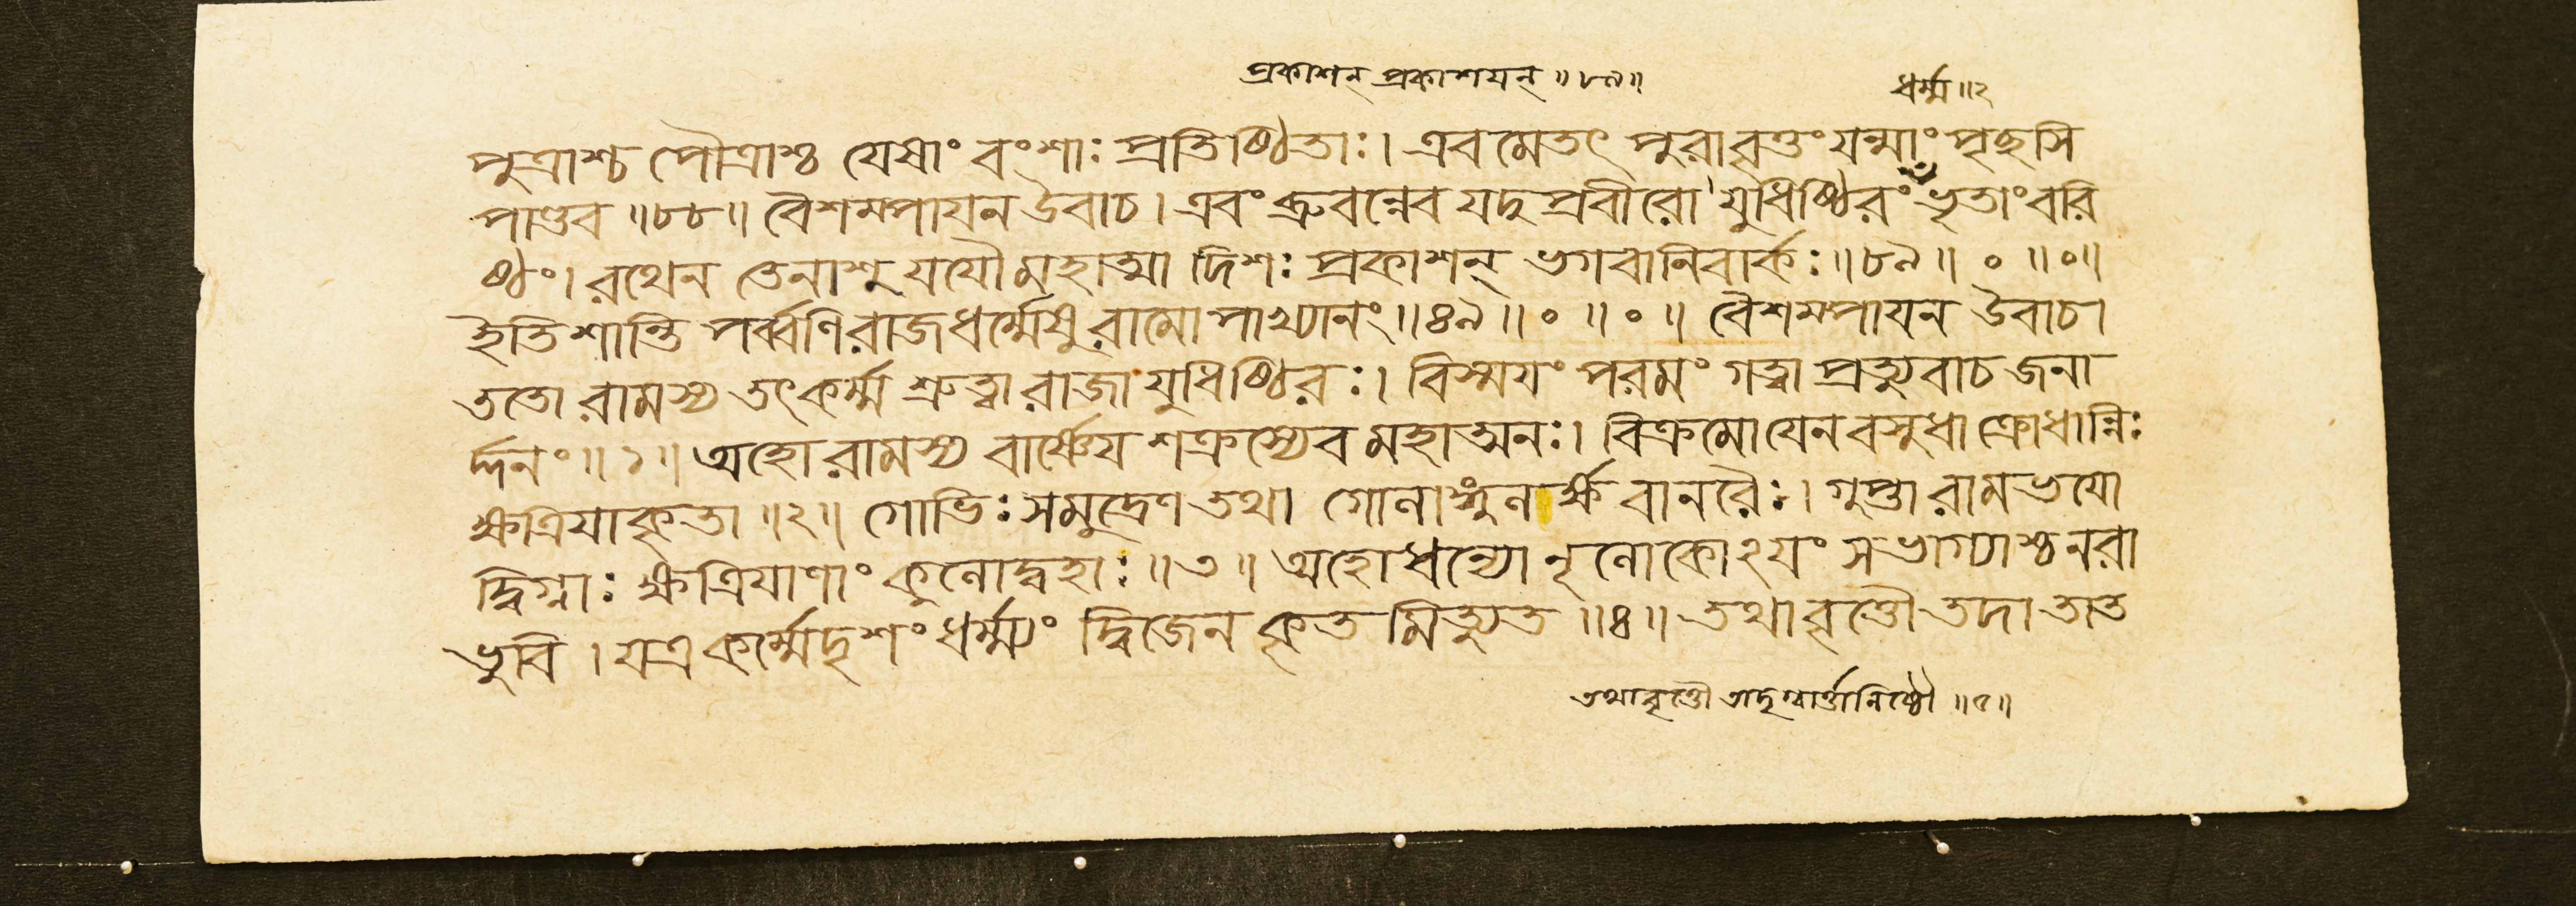 প্রকাশন্ প্রকাশযন্ ॥৮৯॥
ধর্ম্ম ॥২
পুত্রাশ্চ পৌত্রাশ্চ যেষাং বংশাঃ প্রতিষ্ঠিতাঃ। এবমেতৎ পুরাবৃত্তং যন্মাং পৃছসি
পাণ্ডব ॥৮৮॥ বৈশমপাযন উবাচ। এবং ব্রুবন্নেব যদুপ্রবীরো যুধিষ্ঠিরং ভৃতাং বরি
ষ্ঠং। রথেন তেনাশু যযৌ মহাত্মা দিশঃ প্রকাশন্ ভগবানিবার্কঃ ॥৮৯॥ ० ॥०॥
ইতি শান্তি পর্ব্বণি রাজধর্ম্মেষু রামোপাখ্যানং ॥৪৯॥ ० ॥ ० ॥ বৈশমপাযন উবাচ।
ততো রামস্য তৎকর্ম্ম শ্রুত্বা রাজা যুধিষ্ঠিরঃ। বিস্মযং পরমং গত্বা প্রত্যুবাচ জনা
র্দ্দনং ॥১॥ অহো রামস্য বার্ষ্ণেয শক্রস্যেব মহাত্মনঃ। বিক্রমো যেন বসুধা ক্রোধান্নিঃ
ক্ষত্রিযা কৃতা ॥২॥ গোভিঃ সমুদ্রেণ তথা গোলাঙ্গুলর্ক্ষবানরৈঃ। গুপ্তা রামভযো
দ্বিগ্নাঃ ক্ষত্রিযাণাং কুলোদ্বহাঃ ॥৩॥ অহো ধন্যো নৃলোকোঽযং সভাগ্যাশ্চ নরা
ভুবি । যত্র কর্ম্মেদৃশং ধর্ম্ম্যং দ্বিজেন কৃতমিত্যুত ॥৪॥ তথাবৃত্তৌ তদা তাত
তথাবৃত্তৌ তাদৃগ্বার্ত্তানিষ্ঠৌ ॥৫॥